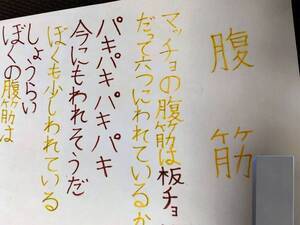 腹筋
マッチョの腹筋は板チョ
だって六つにわれているか
パキパキパキパキ
今にもわれそうだ
ぼくも少しわれている
しょうらい
ぼくの腹筋は